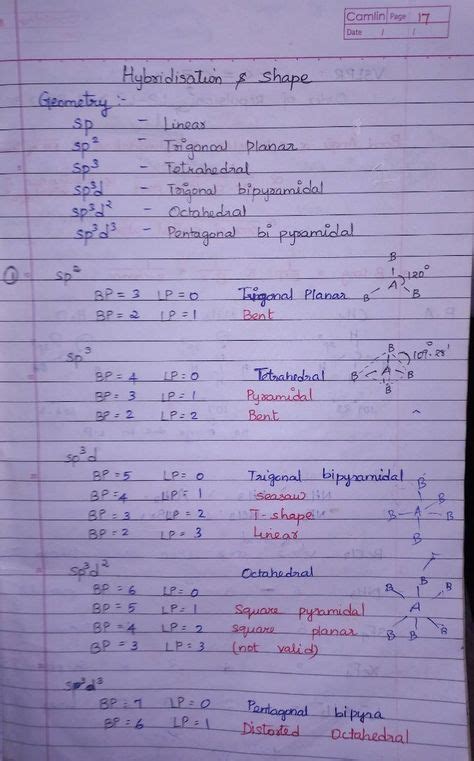 Camlin Page 17
Date / /
Hybridisation & Shape
Geometry :-
sp - Linear
sp² - Trigonal Planar
sp³ - Tetrahedral
sp³d - Trigonal bipyramidal
sp³d² - Octahedral
sp³d³ - Pentagonal bipyramidal
① sp²
BP = 3 LP = 0 Trigonal Planar
BP = 2 LP = 1 Bent
B
A 120°
B B
sp³
BP = 4 LP = 0 Tetrahedral
BP = 3 LP = 1 Pyramidal
BP = 2 LP = 2 Bent
B 109.28'
B A B
B
sp³d
BP = 5 LP = 0 Trigonal bipyramidal
BP = 4 LP = 1 seasaw
BP = 3 LP = 2 T-shape
BP = 2 LP = 3 Linear
B
B A B
B B
sp³d²
BP = 6 LP = 0 Octahedral
BP = 5 LP = 1 square pyramidal
BP = 4 LP = 2 square planar
BP = 3 LP = 3 (not valid)
B B B
A
B B
sp³d³
BP = 7 LP = 0 Pentagonal bipyra
BP = 6 LP = 1 Distorted Octahedral